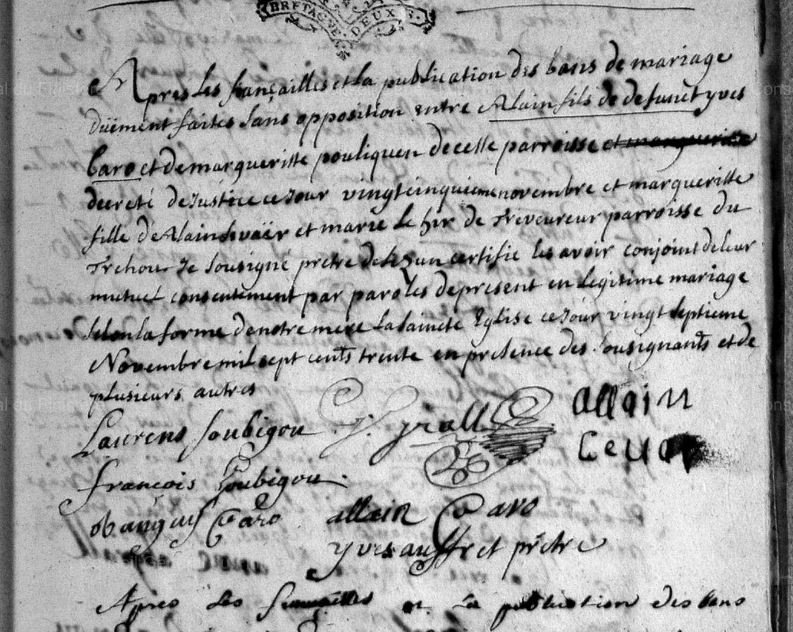 BRETAGNE DEUX S.
Apres les fiançailles et la publication des bans de mariage
düement faites sans opposition entre Alain fils de defunct yves
Caro et de margueritte pouliquen de cette parroisse
decreté de Justice ce Jour vingt cinquieme novembre et margueritte
fille de Alain et marie Le hir de Treveureur parroisse du
Trehou Je sousigné prêtre certifie les avoir conjoint de leur
mutuel consentement par paroles de present en legitime mariage
selon la forme de notre mere La sainte Eglise ce Jour vingt septieme
Novembre mil sept cents trente en presence des sousignants et de
plusieurs autres
Laurens soubigou allain
françois soubigou
Caro allain Caro
yves et prêtre
Apres les fiançailles et la publication des bans